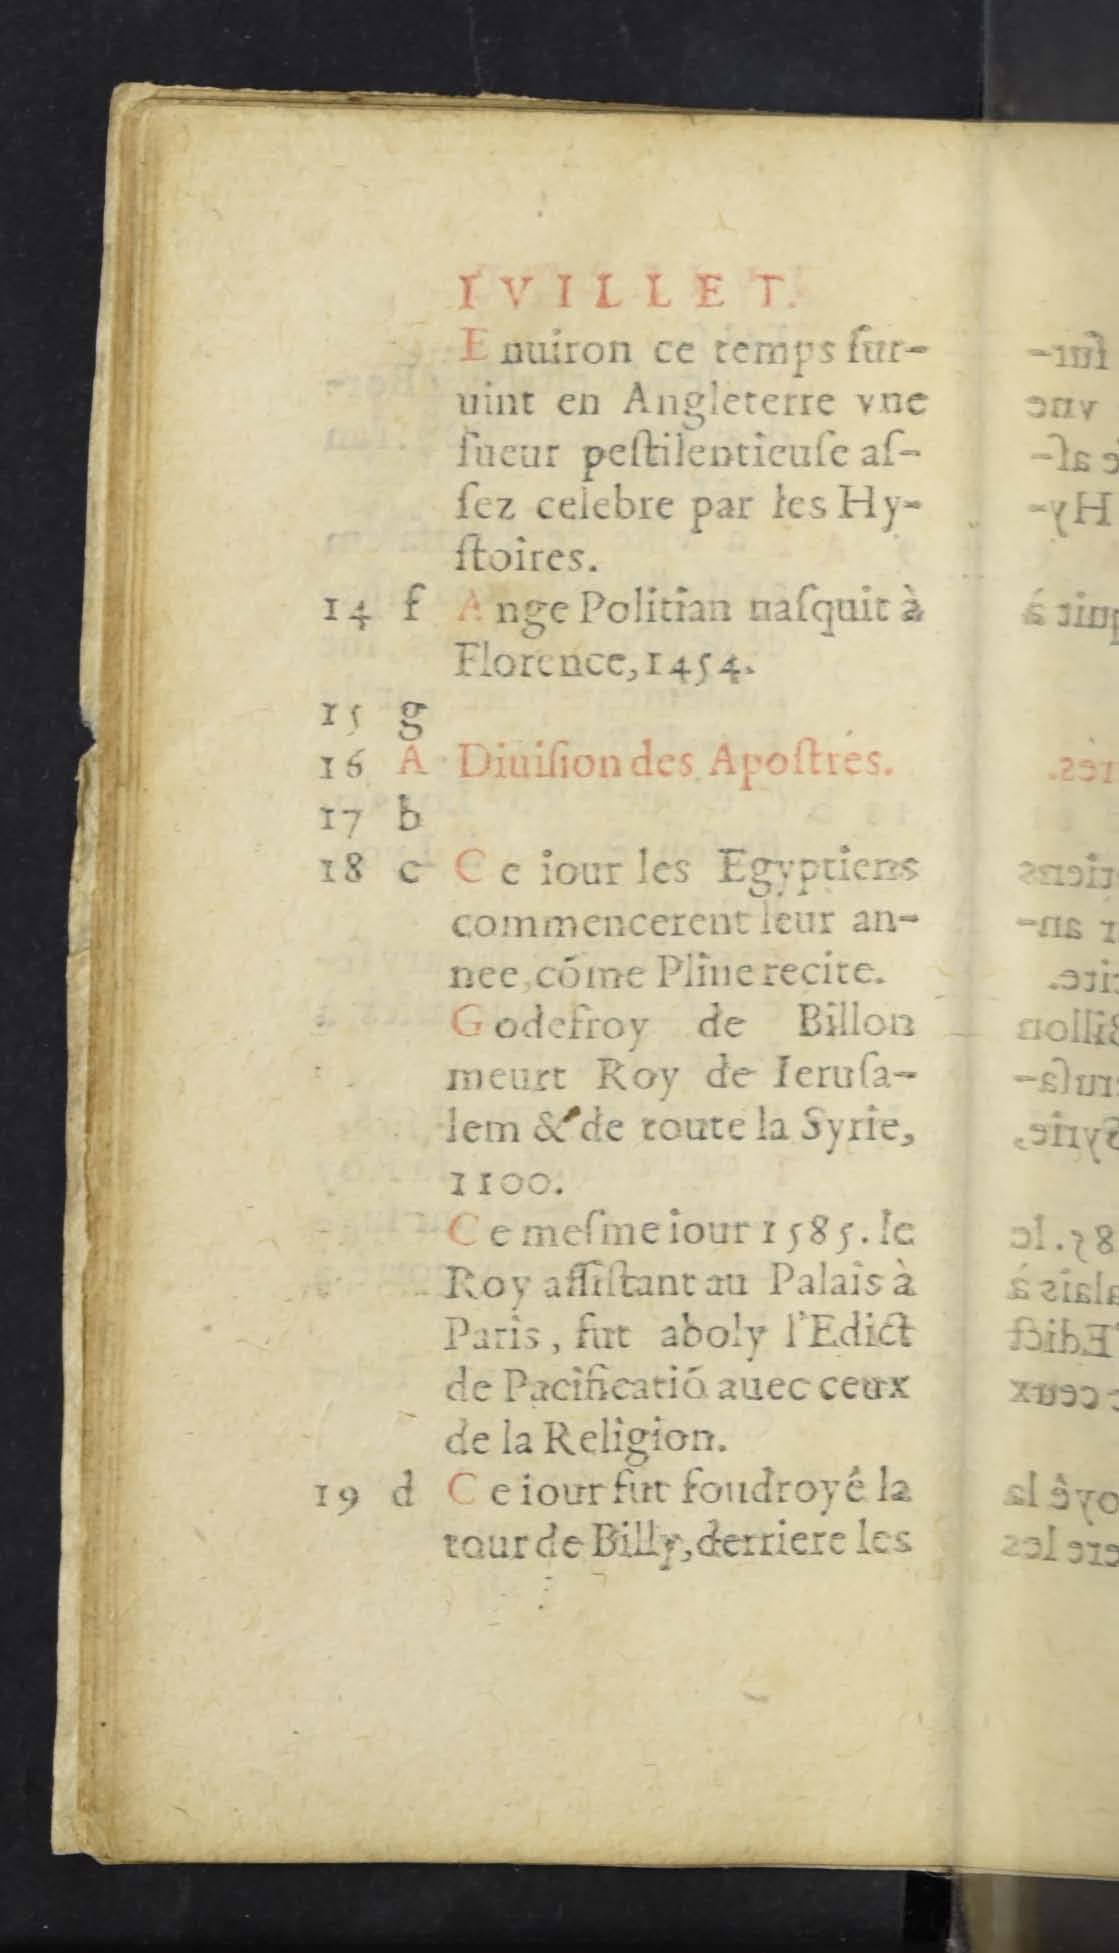 IVILLET.
Enuiron ce temps ſur-
uint en Angleterre vne
ſueur peſtilentieuſe aſ-
ſez celebre par les Hy-
ſtoires.
14 f Ange Politian naſquit à
Florence, 1454.
15 g
16 A Diuiſion des Apoſtres.
17 b
18 c Ce iour les Egyptiens
commencerent leur an-
nee, cõme Pline recite.
Godefroy de Billon
meurt Roy de Ieruſa-
lem & de toute la Syrie,
1100.
Ce meſme iour 1585. le
Roy aſſiſtant au Palais à
Paris, fut aboly l'Edict
de Pacificatiõ auec ceux
de la Religion.
19 d Ce iour fut foudroyé la
tour de Billy, derriere les